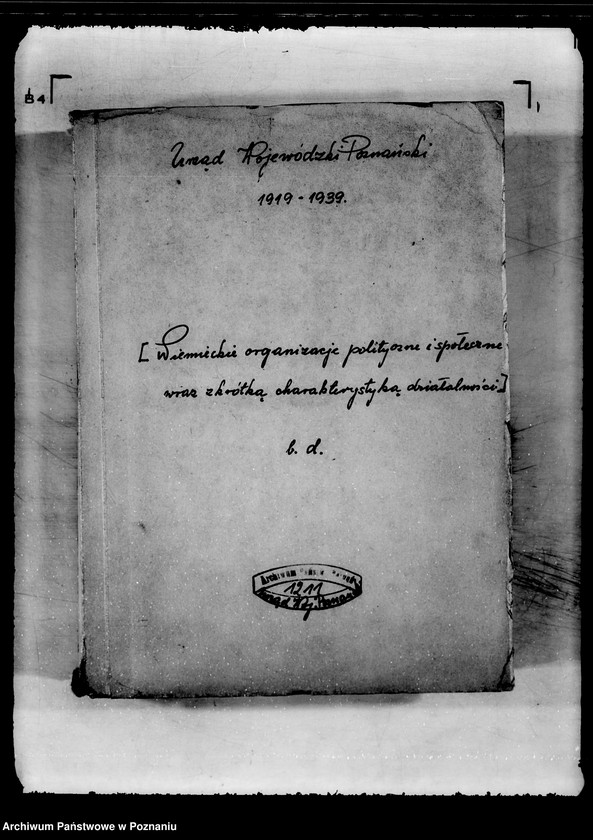 84
Urząd Wojewódzki Poznański
1919 - 1939.
[Niemieckie organizacje polityczne i społeczne
wraz z krótką charakterystyką działalności]
b. d.
Archiwum
1211
Urząd Woj. Poznań
Archiwum Państwowe w Poznaniu